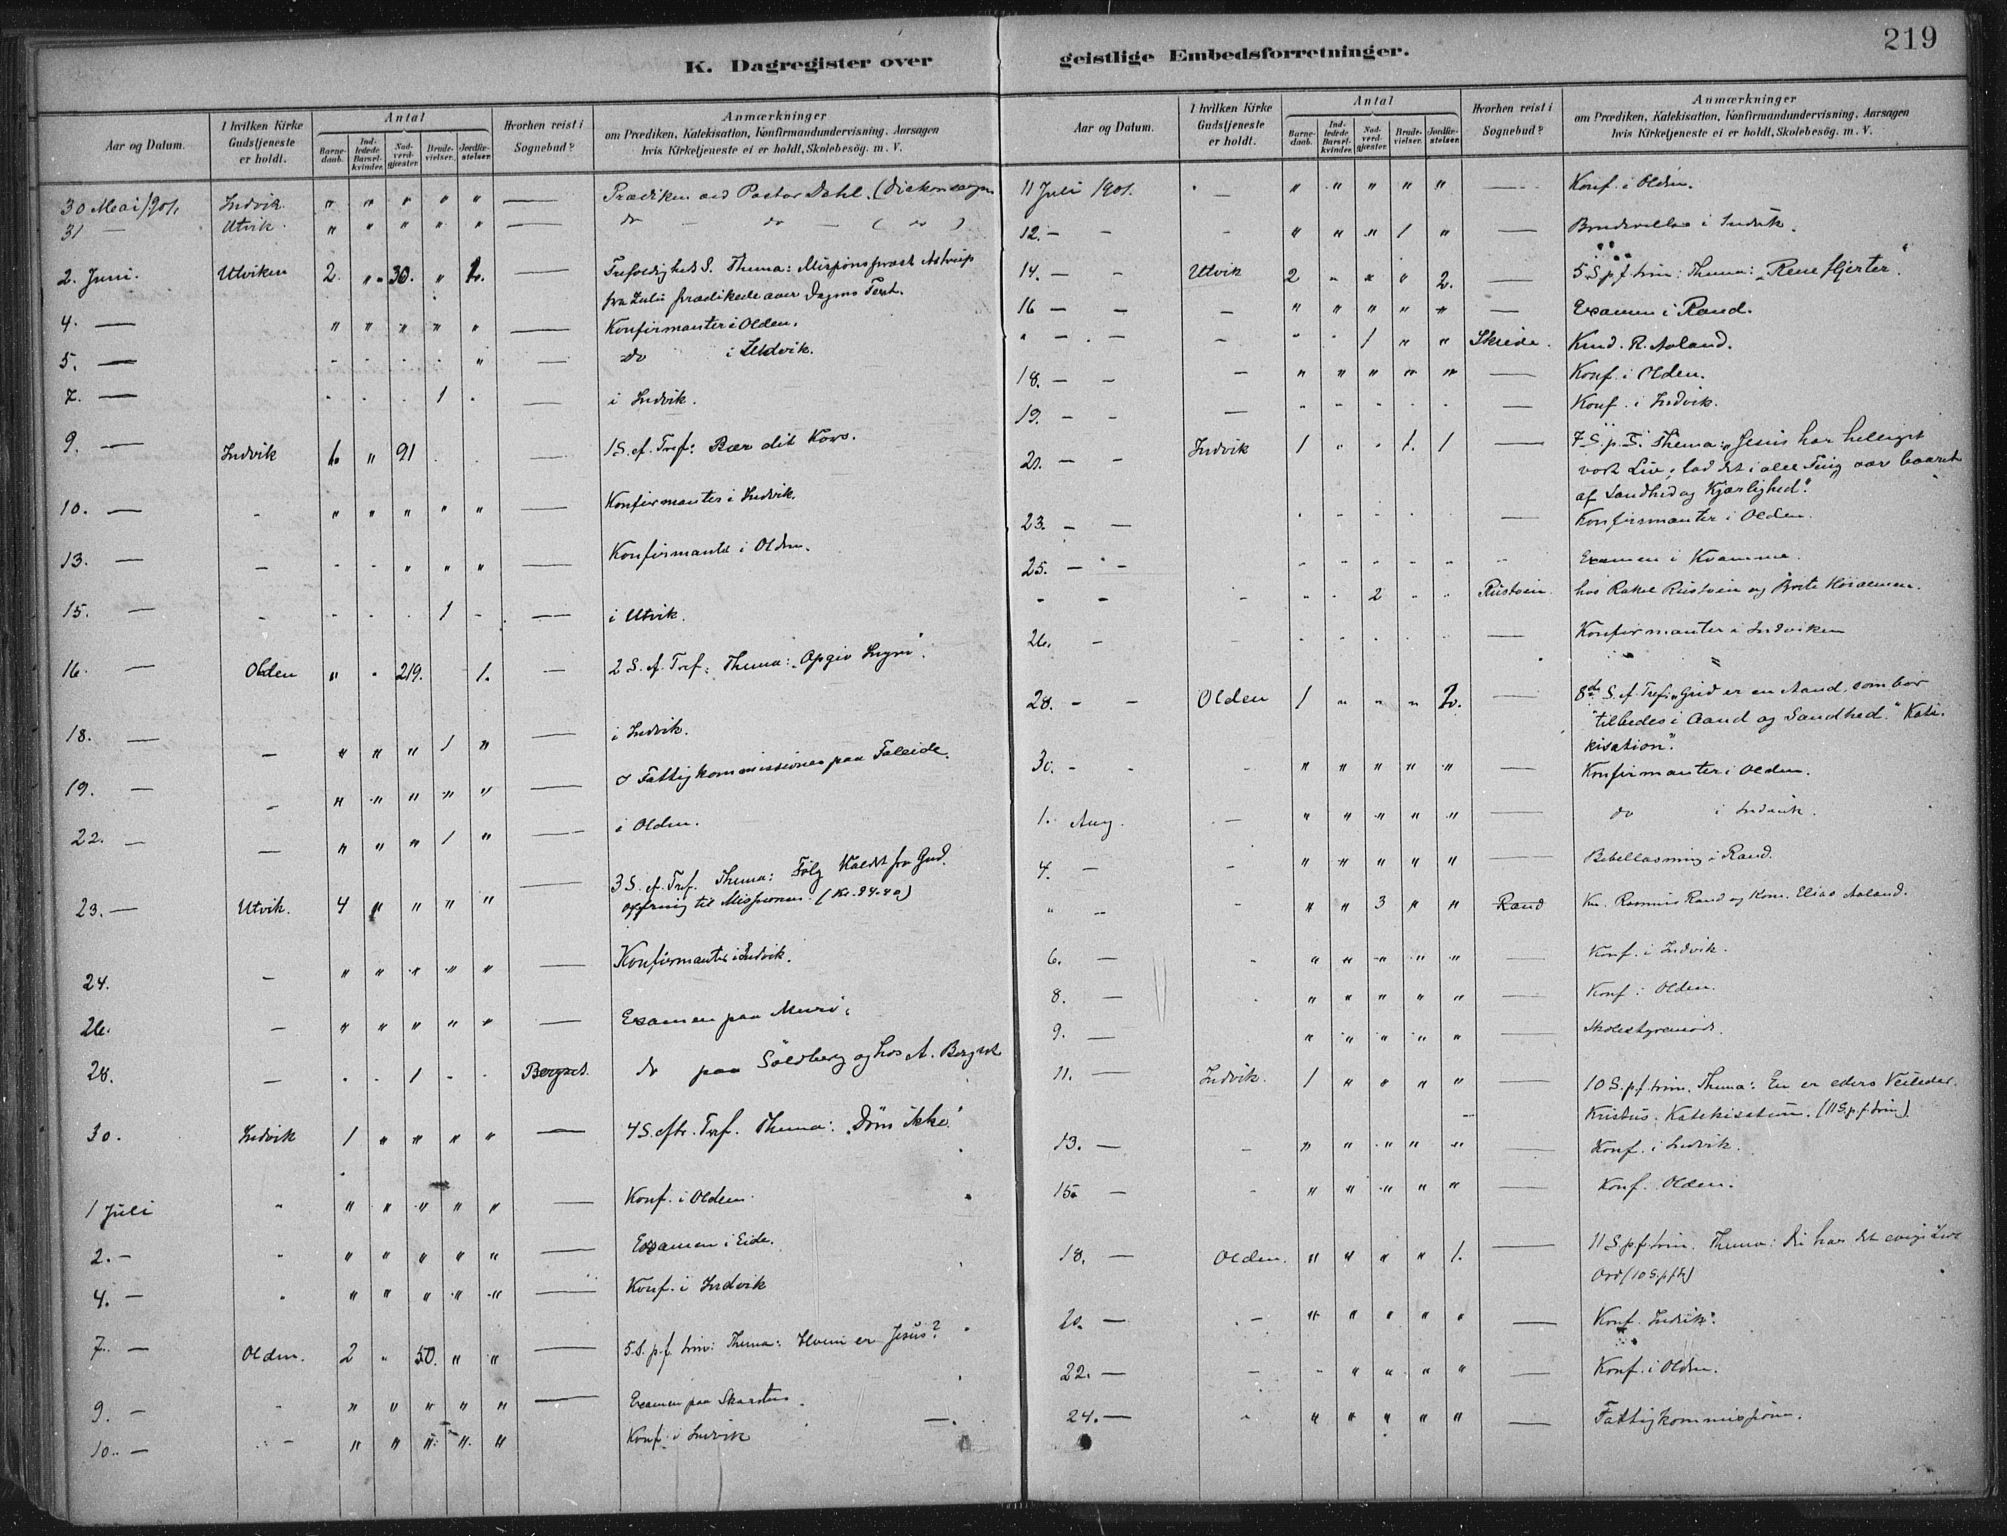 219
K. Dagregister over geistlige Embedsforretninger.
Aar og Datum. | I hvilken Kirke Gudstjeneste er holdt. | Antal | Barnedaab. | Indledede Barselkvinder. | Nadverdgjæster. | Brudevielser. | Jordfæstelser. | Hvorhen reist i Sognebud? | Anmærkninger om Prædiken, Katekisation, Konfirmandundervisning, Aarsagen hvis Kirketjeneste ei er holdt, Skolebesøg. m. V.
30 Mai 1901. Indvik " " " " " — Prædiken ved Pastor Dahl. (Diakonsagen
31 — Utvik. " " " " " — do — do — ( do )
2. Juni. Utviken 2. " 30. " 2. — Trefoldighed S. Thema: Missionsprest Astrup
fra Zulu prædikede over Dagens Text.
4. — " " " " " — Konfirmanter i Olden.
5. — " — do i Indvik.
7. — 1 — i Indvik.
9. — Indvik 6. " 91 — 1 S. ef. Tref: Bær dit Kors.
10. — " " " " " — Konfirmanter i Indvik.
13. — — " " " — Konfirmanter i Olden.
15. — 1 — i Utvik.
16. — Olden " 219. 1. — 2 S. ef. Tref: Thema:
18. — — " " " 1 " — i Indvik.
19. — — " " " " " — Fattigkommissionen paa Faleide.
22. — — " " " 1 " — i Olden.
23. — Utvik. 4 " " " " — 3 S. ef. Tref. Thema: Følg Kaldet fra Gud.
ofring til Missionen. (Kr. 24.40)
24. — " " " " " — Konfirmanter i Indvik.
26. — " " " " " — Examen paa Muri.
28. — 1 Bergset. do paa Söldberg og hos A. Bergset
30. Indvik 1 " " " " — 4 S. eftr. Tref. Thema: "Döm ikke"
1 Juli " " " " " — Konf. i Olden.
2. — " " " " " — Examen i Eide.
4. — " " " " " — Konf. i Indvik
7. — Olden. 2 " 50. " " — 5 S. p. f. trin: Thema: Hvem er Jesus?
9. — " " " " " — Examen paa Skarsten.
10. — — " " " " " Konf. i Indvik —
Aar og Datum. | I hvilken Kirke Gudstjeneste er holdt. | Antal | Barnedaab. | Indledede Barselkvinder. | Nadverdgjæster. | Brudevielser. | Jordfæstelser. | Hvorhen reist i Sognebud? | Anmærkninger om Prædiken, Katekisation, Konfirmandundervisning, Aarsagen hvis Kirketjeneste ei er holdt, Skolebesøg. m. V.
11 Juli 1901. — " " " " " — Konf. i Olden.
12. — — " " " 1 " — Brudevielse i Indvik.
14. — — Utvik 2 " " " 2. — 5 S. p. f. trin: Thema: "Rene Hjerter."
16 — — — " " " " " — Examen i Rand.
" — — — 1 " " Skrede. Knud. R. Aaland.
18. — — — " " " " " — Konf. i Olden.
19. — — — — Konf. i Indvik.
21. — — Indvik 1 1. 1 — 7 S. p. T. Thema: "Jesus har helliget
vort Liv, lad det i alle Ting være baaret
af Sandhed og Kjærlighed".
23. — — — Konfirmanter i Olden.
25. — — Examen i Kvamme.
" — 2 Rustøen. hos Rakel Rustøen og Brite
26. — — Konfirmanter i Indviken
28. — — Olden 1 " " " 2. — 8de S. ef. Tref: "Gud er en Aand, som bør
tilbedes i Aand og Sandhed." Kate-
kisation".
30. — — " " " " " — Konfirmanter i Olden.
1. Aug. — " " " " " — do i Indvik.
4. — — " " " " " — Bibellæsning i Rand.
" — " " 3 " " Rand Kn. Rasmus Rand og Kone. Elias Aaland.
6. — " " " " " — Konf. i Indvik.
8. — " " " " " — Konf. i Olden.
9. — " " " " " — Skolestyremöde.
11. — Indvik. 1 " " " " — 10 S. p. f. trin. Thema: En er eders Veileder.
Kristus. Katekisation. (11 S. p. f. trin).
13. — " " " " " — Konf. i Indvik.
15. — " " " " " — Konf. Olden.
18. — Olden. " " " " 1. — 11 S. p. f. trin. Thema: Du har det evige Livs
Ord (10 S. p. f. tr)
20. — — " " " " " — Konf. Indvik.
22. — — " " " " — Konf. i Olden.
24. — " " " " " — Fattigkommission.